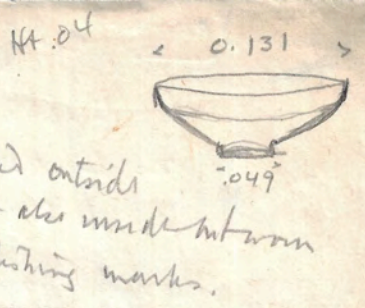 Ht .04
< 0.131 >
.049
d outside
also inside but worn
ishing marks.